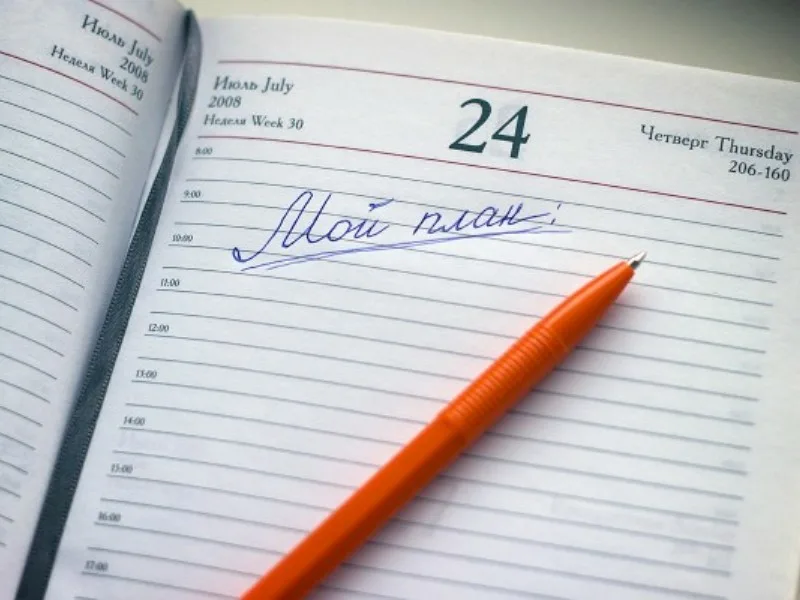 Июль July
2008
Неделя Week 30
Июль July
2008
Неделя Week 30
24
Четверг Thursday
206-160
8:00
9:00
Мой план:
10:00
11:00
12:00
13:00
14:00
15:00
16:00
17:00